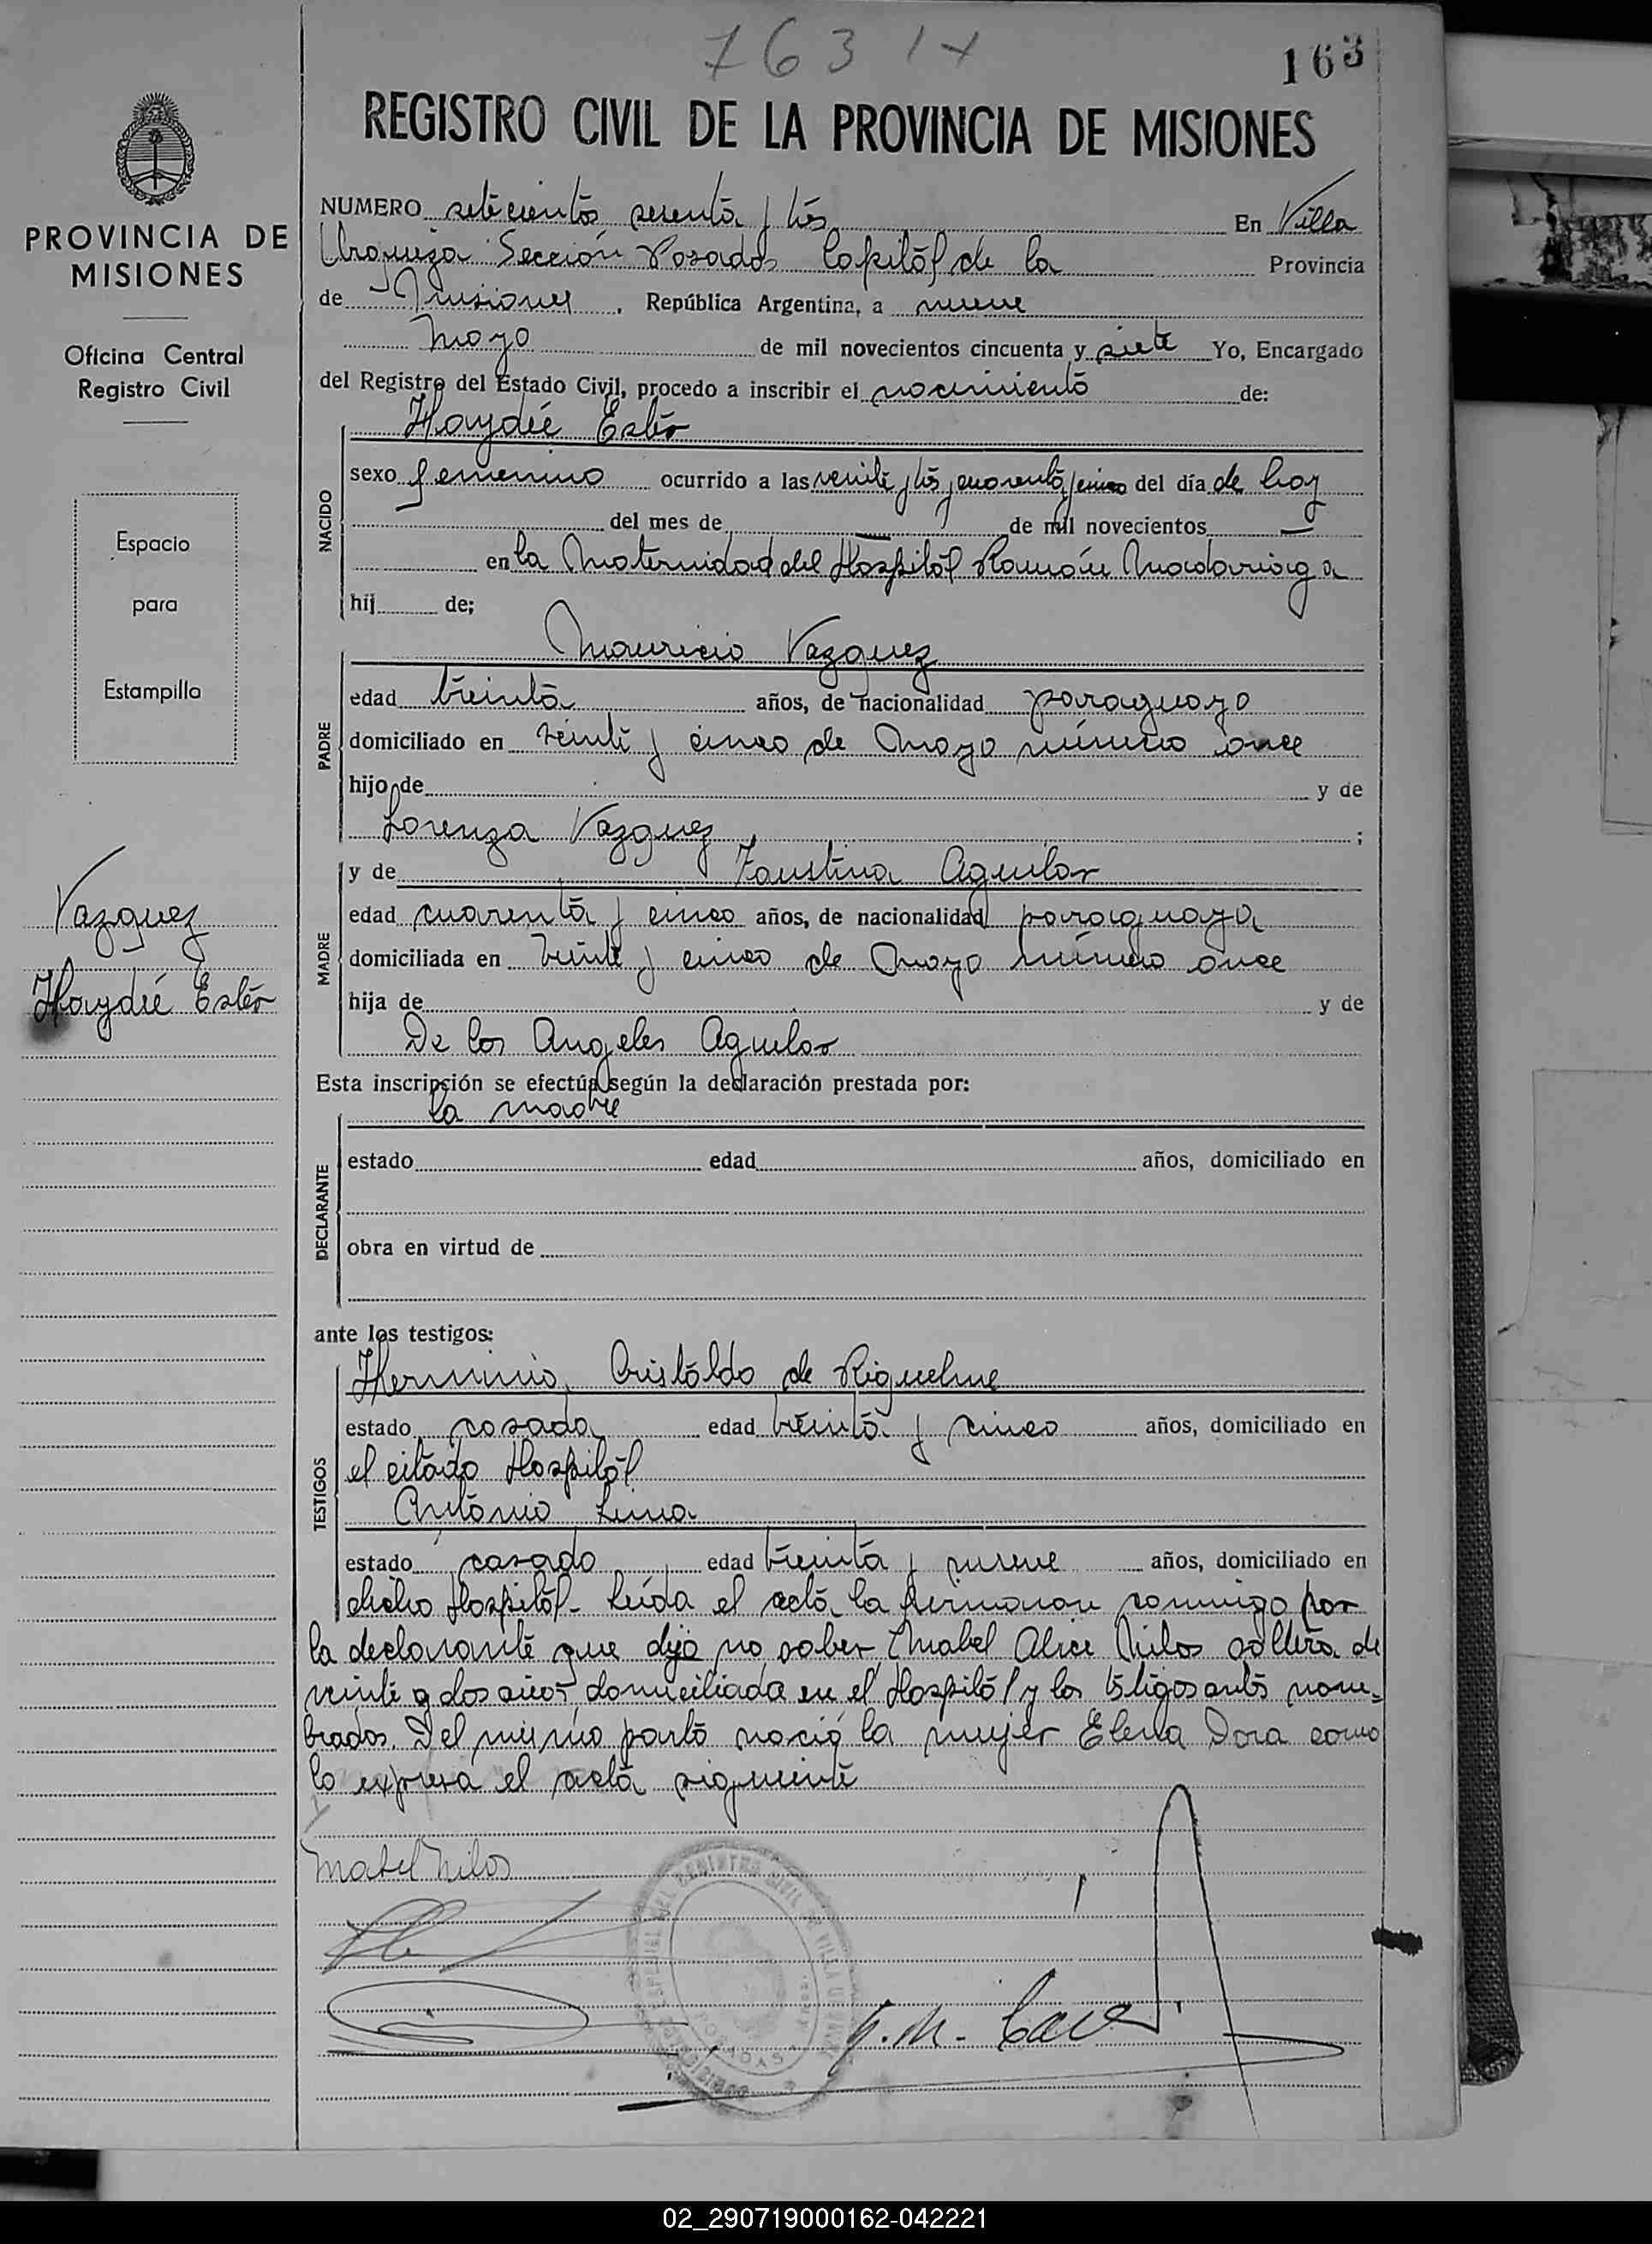 763 1x
163
REGISTRO CIVIL DE LA PROVINCIA DE MISIONES
PROVINCIA DE
MISIONES
Oficina Central
Registro Civil
Espacio
para
Estampilla
Vazquez
Haydée Ester
NUMERO setecientos sesenta y tres En Villa
Urquiza Sección Posadas Capital de la Provincia
de Misiones, República Argentina, a nueve
Mayo de mil novecientos cincuenta y siete Yo, Encargado
del Registro del Estado Civil, procedo a inscribir el nacimiento de:
Haydée Ester
NACIDO
sexo femenino ocurrido a las veinte y tres y cuarenta y cinco del día de hoy
del mes de — de mil novecientos —
en la Maternidad del Hospital Ramón Madariaga
hij de;
Mauricio Vazquez
PADRE
edad treinta años, de nacionalidad paraguayo
domiciliado en veinte y cinco de Mayo número once
hijo de y de
Lorenza Vazquez ;
y de Faustina Aguilar
MADRE
edad cuarenta y cinco años, de nacionalidad paraguaya
domiciliada en veinte y cinco de Mayo número once
hija de y de
De los Angeles Aguilar
Esta inscripción se efectúa según la declaración prestada por:
la madre
DECLARANTE
estado edad años, domiciliado en
obra en virtud de
ante los testigos:
Herminia Cristaldo de Riquelme
TESTIGOS
estado casada edad treinta y cinco años, domiciliado en
el citado Hospital
Antonio Lima
estado casado edad treinta y nueve años, domiciliado en
dicho Hospital- Leída el acta la firmaron conmigo por
la declarante que dijo no saber, Mabel Alice Milos soltera de
veinte y dos años domiciliada en el Hospital y los testigos antes nom=
brados. Del mismo parto nació la mujer Elena Dora como
lo expresa el acta siguiente
Mabel Milos
REGISTRO CIVIL
VILLA URQUIZA
POSADAS
02_290719000162-042221